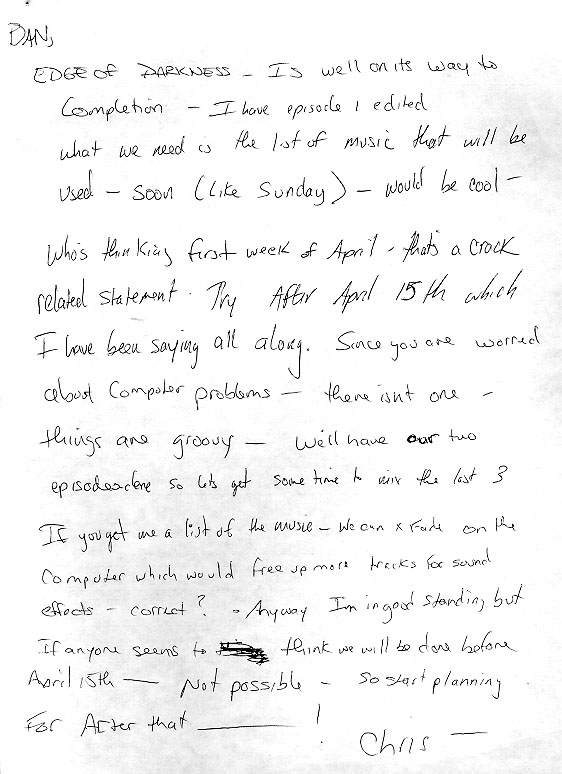 DAN,
EDGE OF DARKNESS - Is well on its way to
Completion - I have episode 1 edited
what we need is the list of music that will be
used - soon (like Sunday) - would be cool -
Who's thinking first week of April - that's a crock
related statement. Try After April 15th which
I have been saying all along. Since you are worried
about Computer problems - there isnt one -
things are groovy - We'll have our two
episodes done so lets get some time to mix the last 3
If you get me a list of the music - we can x Fade on the
Computer which would free up more tracks for sound
effects - correct? - Anyway Im in good standing but
If anyone seems to think we will be done before
April 15th - Not possible - So start planning
For After that !
Chris